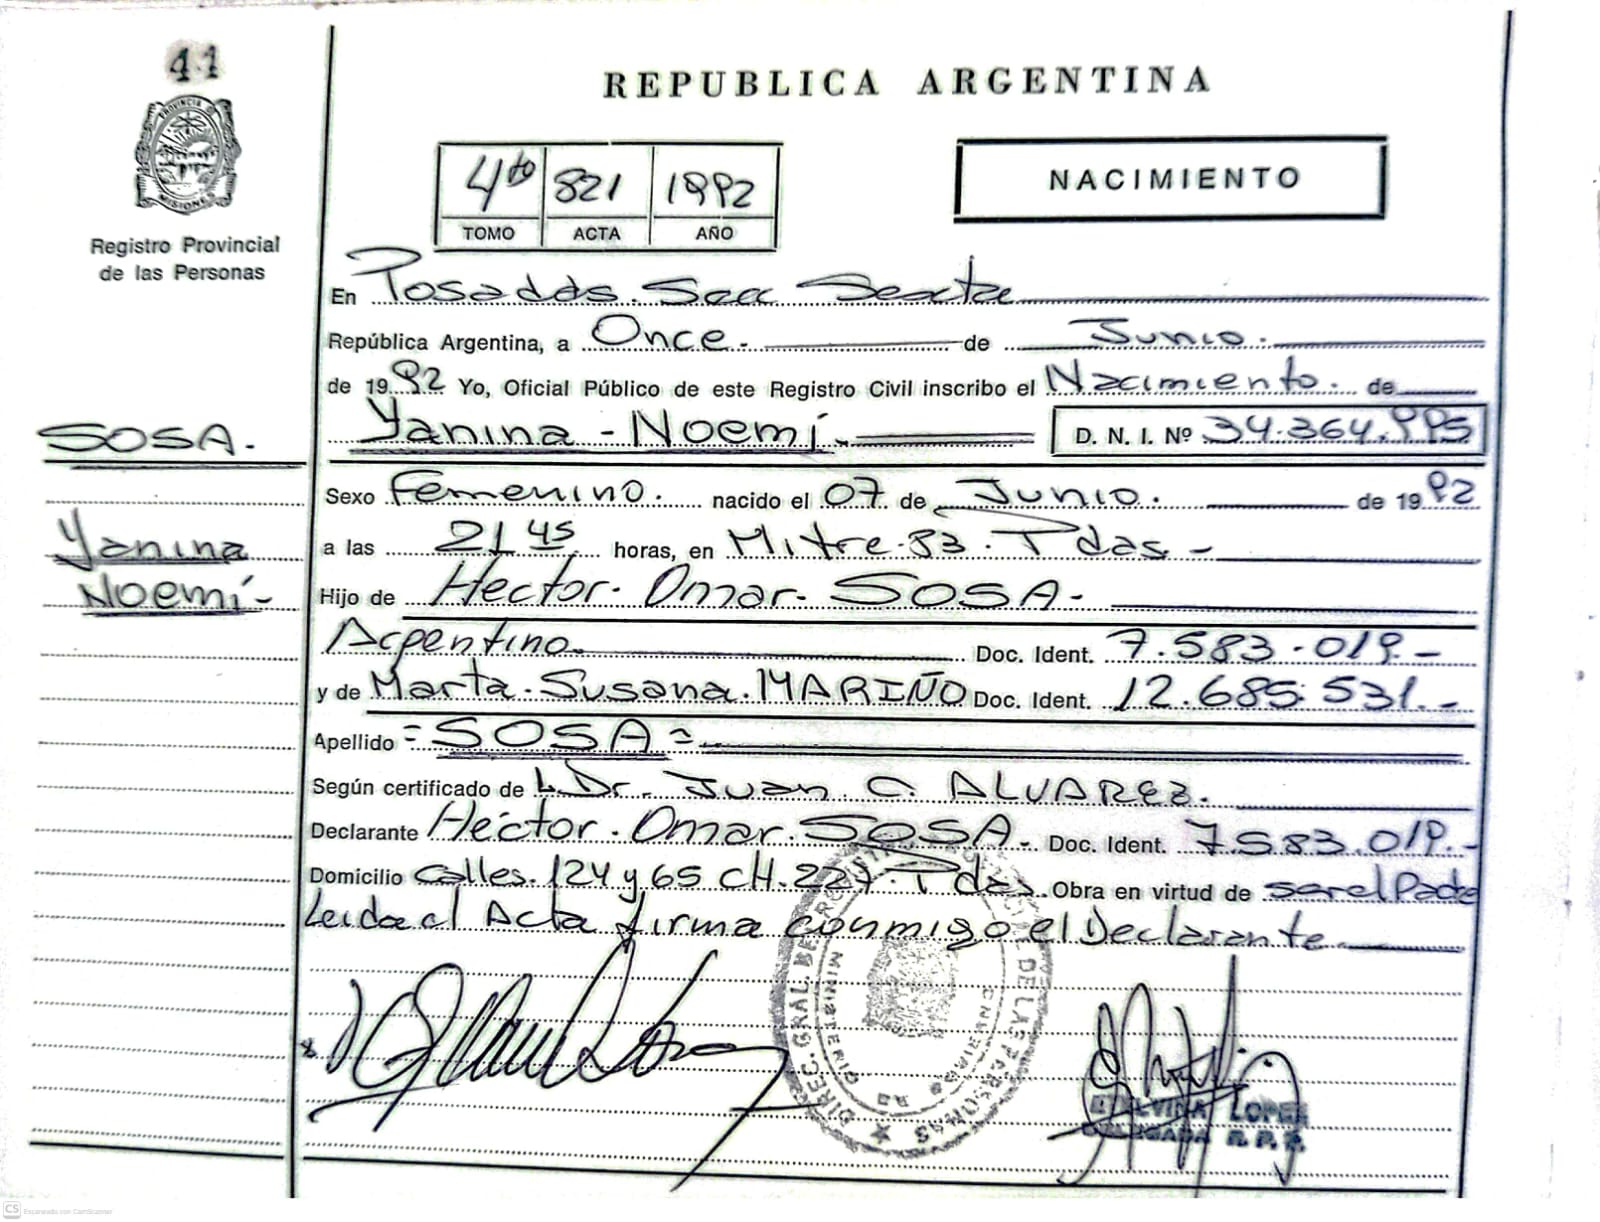 41
REPUBLICA ARGENTINA
PROVINCIA D
MISIONES
Registro Provincial
de las Personas
4to 821 1992
TOMO ACTA AÑO
NACIMIENTO
En Posadas. Secc Sexta
República Argentina, a Once. de Junio.
de 1992 Yo, Oficial Público de este Registro Civil inscribo el Nacimiento. de
SOSA.
Yanina
Noemí-
Yanina - Noemí. D. N. I. Nº 34.364.995
Sexo Femenino. nacido el 07 de Junio. de 1992
a las 21 45 horas, en Mitre. 83. Pdas -
Hijo de Hector. Omar. SOSA-
Argentino. Doc. Ident. 7.583.019.-
y de Marta. Susana. MARIÑO Doc. Ident. 12.685.531.-
Apellido =SOSA=
Según certificado de L. Dr. Juan C. ALVAREZ.
Declarante Hector. Omar. SOSA. Doc. Ident. 7.583.019.-
Domicilio Calles. 124 y 65 CH. 227. Pdas. Obra en virtud de ser el Padre
Leida el Acta firma conmigo el Declarante
DIREC. GRAL. DE LAS PERSONAS
MINISTERIO
LOPEZ
DELEGADA R. P. P.
CS Escaneado con CamScanner